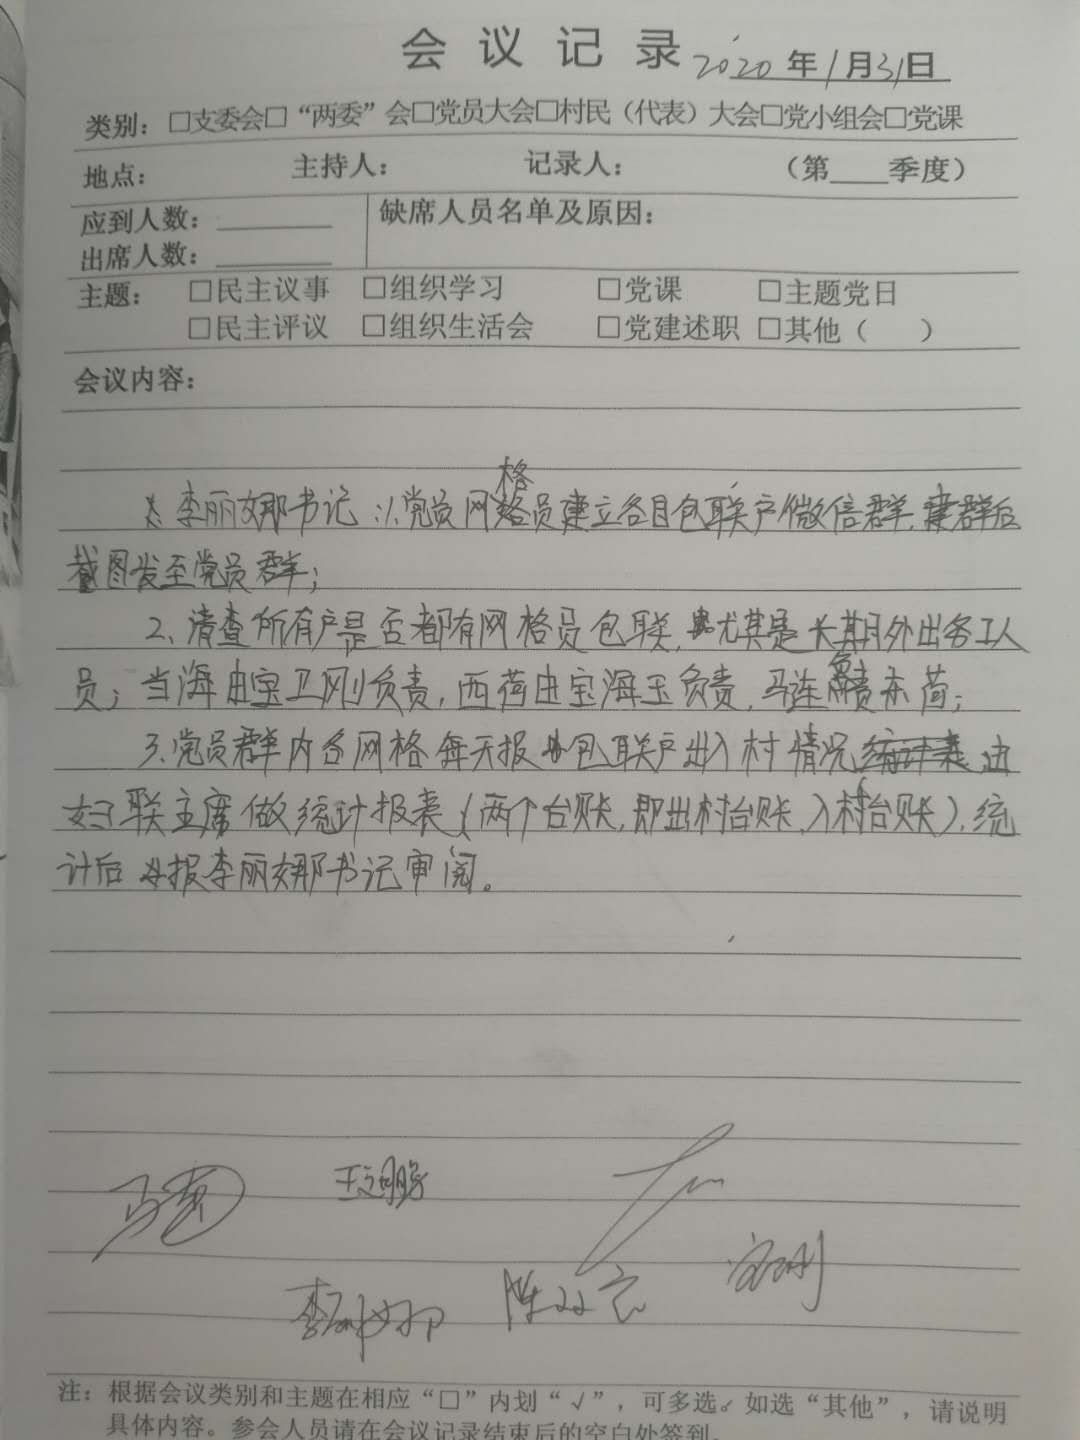 会议记录 2020年1月31日
类别：□支委会□“两委”会□党员大会□村民（代表）大会□党小组会□党课
地点： 主持人： 记录人： （第____季度）
应到人数：________ 缺席人员名单及原因：
出席人数：________
主题： □民主议事 □组织学习 □党课 □主题党日
□民主评议 □组织生活会 □党建述职 □其他（ ）
会议内容：
李丽娜书记：1、党员网格员建立各自包联户微信群，建群后
截图发至党员群；
2、清查所有户是否都有网格员包联，尤其是长期外出务工人
员；当海由宝卫刚负责，西荷由宝海玉负责，马连负责亦荷；
3、党员群内各网格每天报包联户出入村情况，由
妇联主席做统计报表（两个台账，即出村台账，入村台账），统
计后报李丽娜书记审阅。
王文鹏
李丽娜 陈双宏
注：根据会议类别和主题在相应“□”内划“√”，可多选。如选“其他”，请说明
具体内容。参会人员请在会议记录结束后的空白处签到。